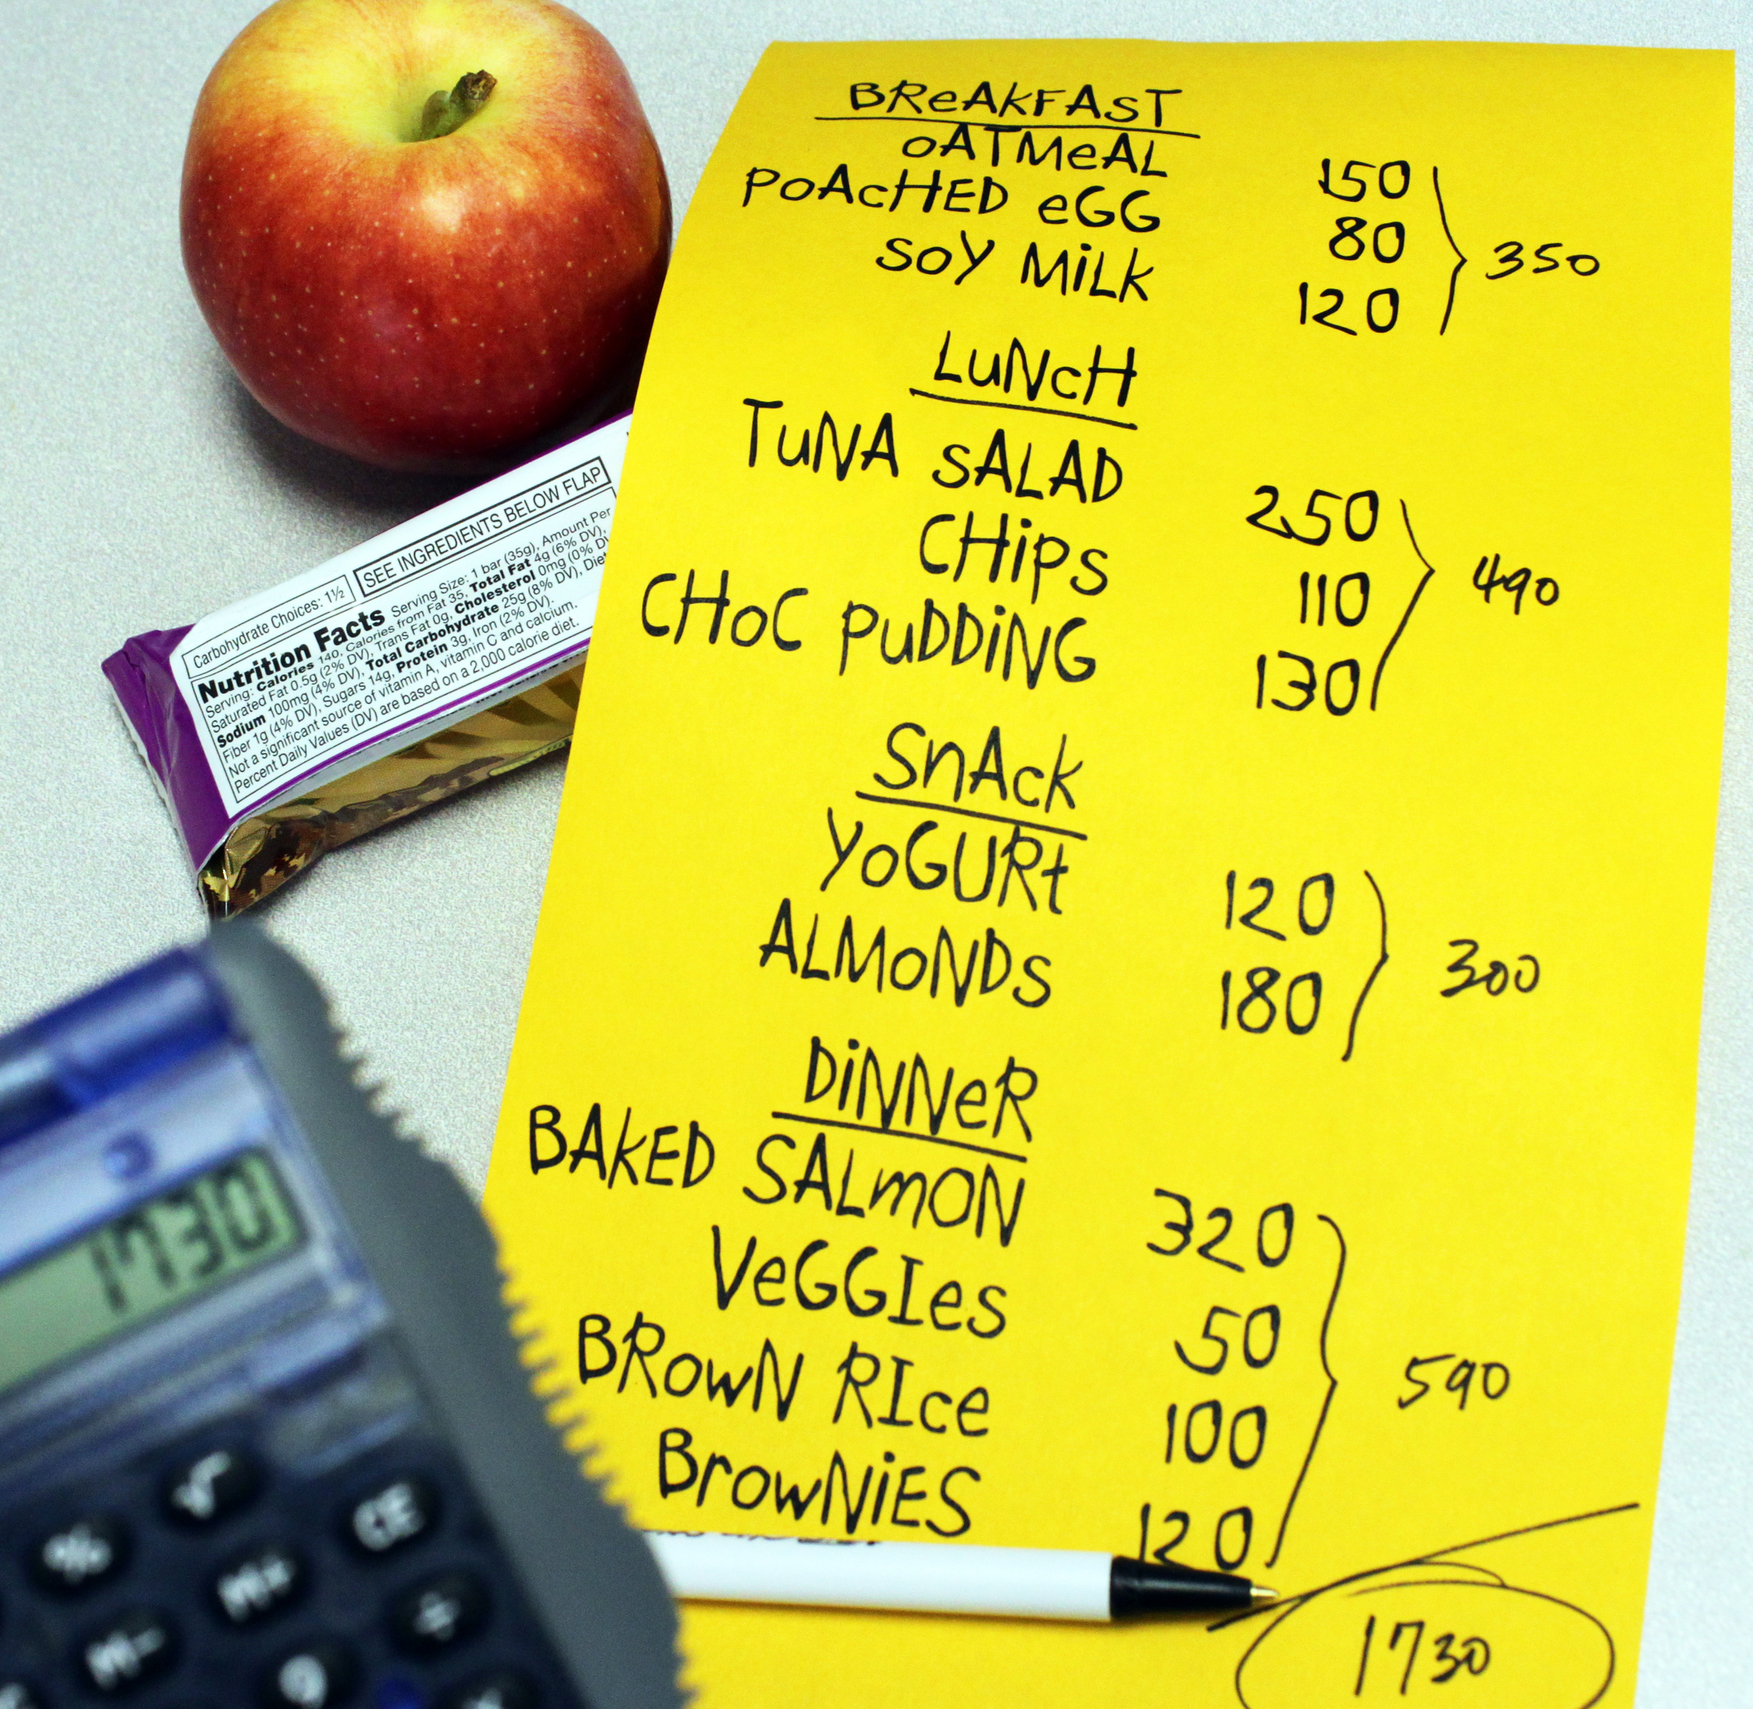 BReAKFAsT
oATMeAL 150
PoAcHED eGG 80
SoY MiLK 120
350
LuNcH
TuNA sALAD 250
CHiPs 110
CHoC PuDDiNG 130
490
SnAck
YoGURt 120
ALMoNDs 180
300
DiNNeR
BAkED SALmON 320
VeGGIes 50
BRowN RIce 100
BrowNiES 120
590
1730
Carbohydrate Choices: 1½
SEE INGREDIENTS BELOW FLAP
Nutrition Facts Serving Size: 1 bar (35g), Amount Per
Serving: Calories 140, Calories from Fat 35, Total Fat 4g (6% DV),
Saturated Fat 0.5g (2% DV), Trans Fat 0g, Cholesterol 0mg (0% DV
Sodium 100mg (4% DV), Total Carbohydrate 25g (8% DV), Die
Fiber 1g (4% DV), Sugars 14g, Protein 3g, Iron (2% DV).
Not a significant source of vitamin A, vitamin C and calcium.
Percent Daily Values (DV) are based on a 2,000 calorie diet.
1730
√ CE
% M+ ÷
M- 9